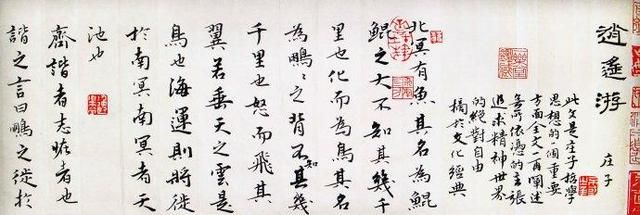 逍遙游
庄子
此文是庄子哲學
思想的一個重要
方面全文一再闡述
無所依憑的主張
追求精神世界
的絕對自由
摘於文化經典
北冥有魚其名為鯤
鯤之大不知其幾千
里也化而為鳥其名
為鵬々之背不知其幾
千里也怒而飛其
翼若垂天之雲是
鳥也海運則將徙
於南冥南冥者天
池也
齊諧者志怪者也
諧之言曰鵬之徙於